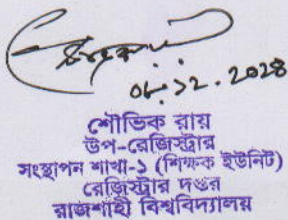 ০৮.১২.২০২৪
শৌভিক রায়
উপ-রেজিস্ট্রার
সংস্থাপন শাখা-১ (শিক্ষক ইউনিট)
রেজিস্ট্রার দপ্তর
রাজশাহী বিশ্ববিদ্যালয়